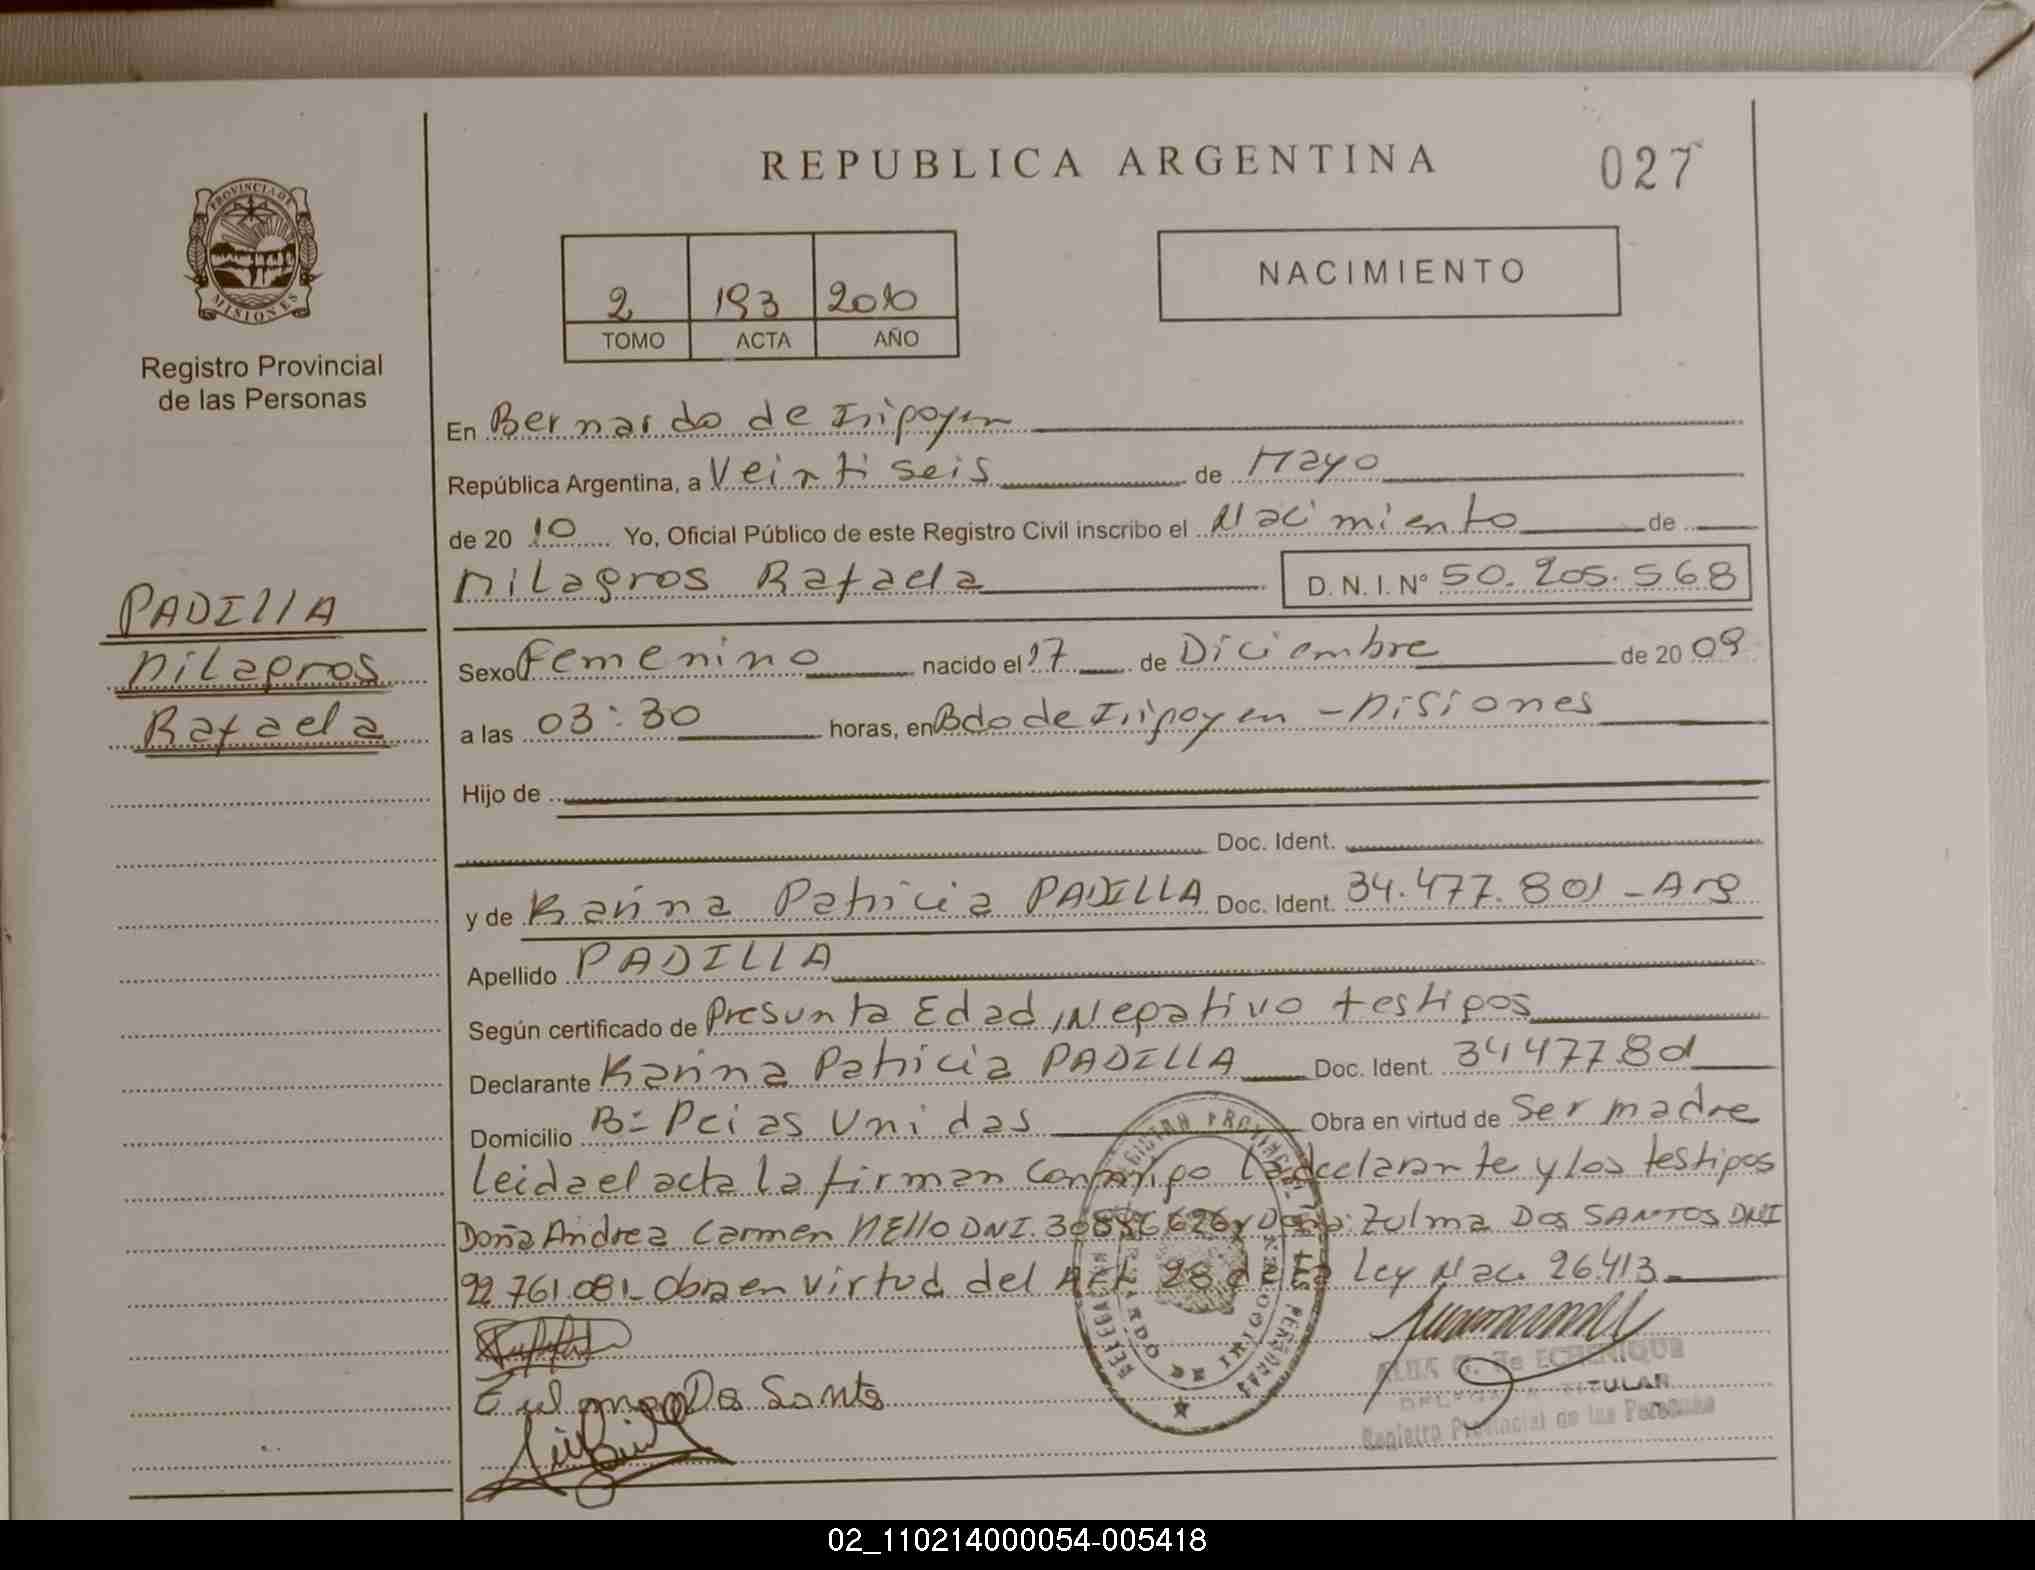 REPUBLICA ARGENTINA
027
PROVINCIA DE
MISIONES
Registro Provincial
de las Personas
2 193 2010
TOMO ACTA AÑO
NACIMIENTO
En Bernardo de Irigoyen
República Argentina, a Veintiseis de Mayo
de 20 10 Yo, Oficial Público de este Registro Civil inscribo el Nacimiento de
Milagros Rafaela D. N. I. N° 50.205.568
PADILLA
Milagros
Rafaela
Sexo Femenino nacido el 17 de Diciembre de 20 09
a las 03:30 horas, en Bdo de Irigoyen - Misiones
Hijo de
Doc. Ident.
y de Karina Patricia PADILLA Doc. Ident. 34.477.801 - Arg
Apellido PADILLA
Según certificado de Presunta Edad, Negativo testigos
Declarante Karina Patricia PADILLA Doc. Ident. 34477801
Domicilio B= Pcias Unidas Obra en virtud de Ser madre
Leida el acta la firman conmigo la declarante y los testigos
Doña Andrea Carmen MELLO DNI. y Doña: Zulma DOS SANTOS DNI
92.761.081- Obra en virtud del Art. 28 de la Ley Nac. 26413
Dos Santo
REGISTRO PROVINCIAL DE LAS PERSONAS
ECHENIQUE
TITULAR
Registro Provincial de las Personas
02_110214000054-005418